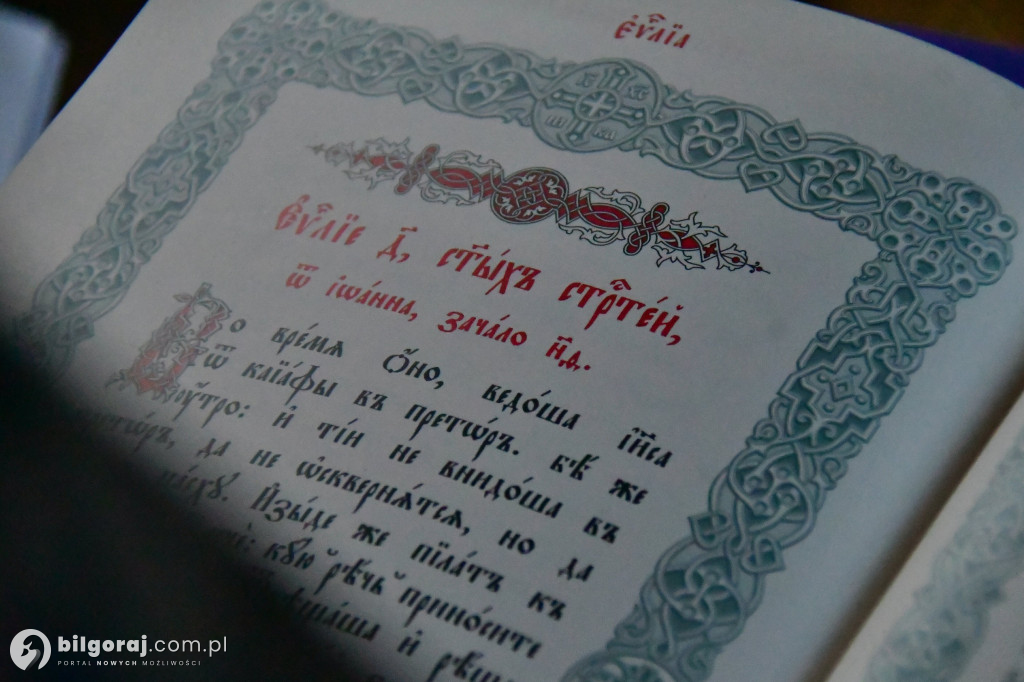 Є҆ѵⷢ҇лїѧ
Є҆ѵⷢ҇лїе д҃, ст҃ы́хъ стрⷭ҇те́й,
ѿ і҆ѡа́нна, зача́ло н҃д.
Во вре́мѧ ѻ҆́но, ведо́ша і҆и҃са
ѿ каїа́фы въ претѡ́ръ. бѣ́ же
оу҆́тро: и҆ ті́и не внидо́ша въ
да не ѡ҆сквернѧ́тсѧ, но да
И҆зы́де же пїла́тъ къ
кꙋ́ю рѣ́чь прино́сите
и҆ рѣ́ша
bilgoraj.com.pl
PORTAL NOWYCH MOŻLIWOŚCI